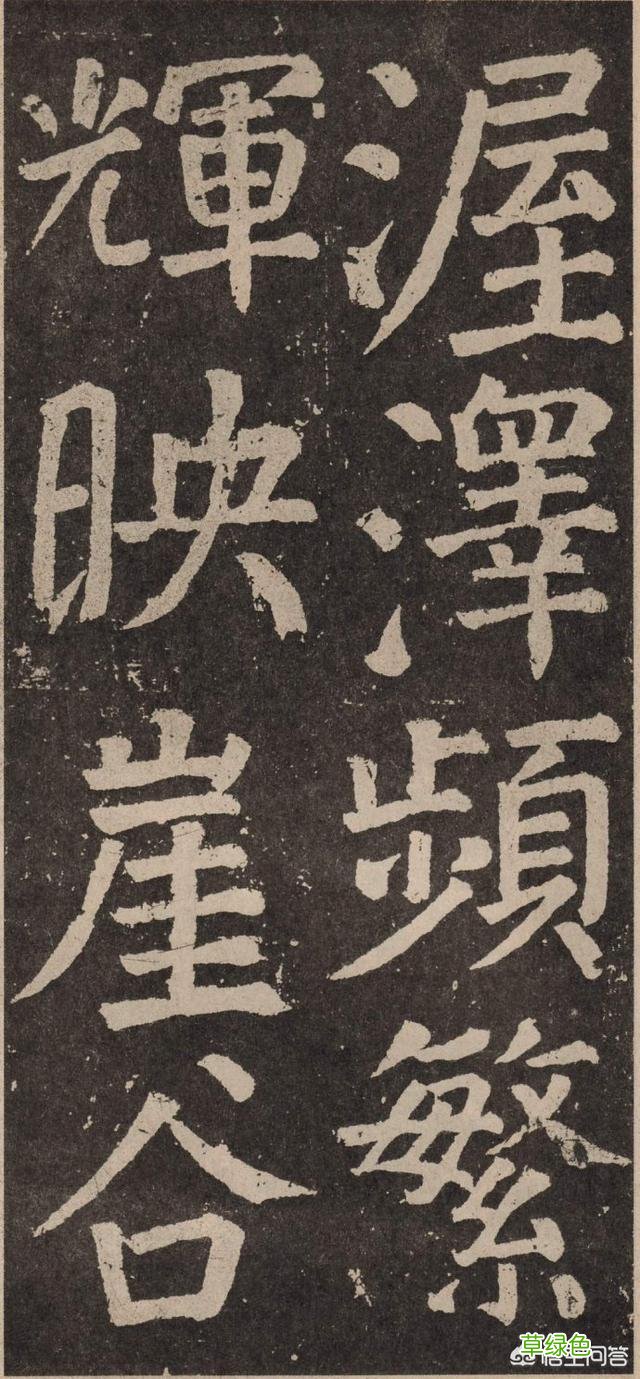 渥澤頻繁
輝映崖谷
草绿色
悟空问答